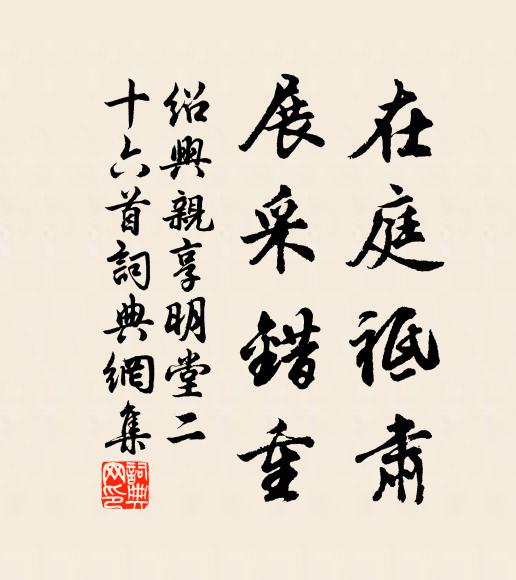 在庭祗肅
展采錯重
紹興親享明堂二
十六首詞典網集
詞典
网印